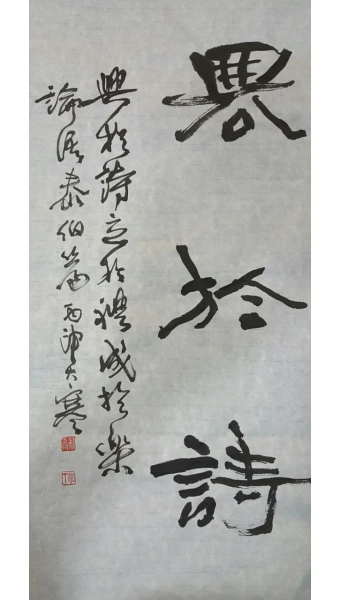 興於詩
興於詩立於禮成於樂
論語泰伯篇丙申大寒